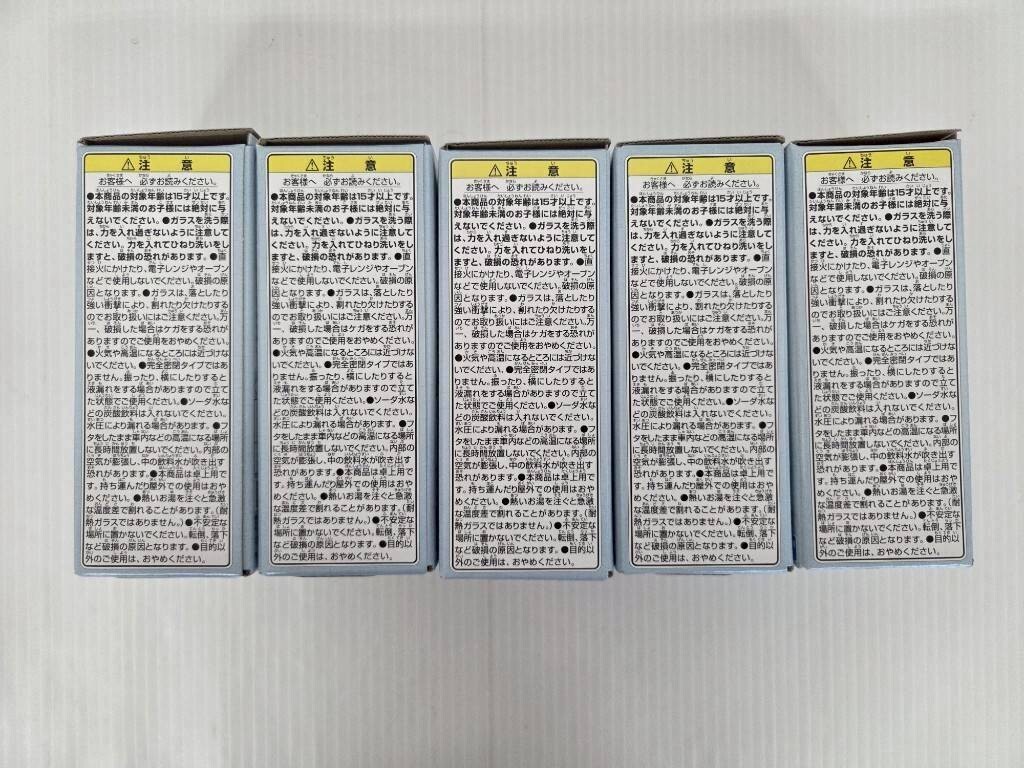 ⚠注意
お客様へ 必ずお読みください。
●本商品の対象年齢は15才以上です。
対象年齢未満のお子様には絶対に与
えないでください。●ガラスを洗う際
は、力を入れ過ぎないように注意して
ください。力を入れてひねり洗いをし
ますと、破損の恐れがあります。●直
接火にかけたり、電子レンジやオーブン
などで使用しないでください。破損の原
因となります。●ガラスは、落としたり
強い衝撃により、割れたり欠けたりする
のでお取り扱いにはご注意ください。万
一、破損した場合はケガをする恐れが
ありますのでご使用をおやめください。
●火気や高温になるところには近づけな
いでください。●完全密閉タイプではあ
りません。振ったり、横にしたりすると
液漏れをする場合がありますので立て
た状態でご使用ください。●ソーダ水な
どの炭酸飲料は入れないでください。
水圧により漏れる場合があります。●フ
タをしたまま車内などの高温になる場所
に長時間放置しないでください。内部の
空気が膨張し、中の飲料水が吹き出す
恐れがあります。●本商品は卓上用で
す。持ち運んだり屋外での使用はおや
めください。●熱いお湯を注ぐと急激
な温度差で割れることがあります。(耐
熱ガラスではありません。)●不安定な
場所に置かないでください。転倒、落下
など破損の原因となります。●目的以
外のご使用は、おやめください。
⚠注意
お客様へ 必ずお読みください。
●本商品の対象年齢は15才以上です。
対象年齢未満のお子様には絶対に与
えないでください。●ガラスを洗う際
は、力を入れ過ぎないように注意して
ください。力を入れてひねり洗いをし
ますと、破損の恐れがあります。●直
接火にかけたり、電子レンジやオーブン
などで使用しないでください。破損の原
因となります。●ガラスは、落としたり
強い衝撃により、割れたり欠けたりする
のでお取り扱いにはご注意ください。万
一、破損した場合はケガをする恐れが
ありますのでご使用をおやめください。
●火気や高温になるところには近づけな
いでください。●完全密閉タイプではあ
りません。振ったり、横にしたりすると
液漏れをする場合がありますので立て
た状態でご使用ください。●ソーダ水な
どの炭酸飲料は入れないでください。
水圧により漏れる場合があります。●フ
タをしたまま車内などの高温になる場所
に長時間放置しないでください。内部の
空気が膨張し、中の飲料水が吹き出す
恐れがあります。●本商品は卓上用で
す。持ち運んだり屋外での使用はおや
めください。●熱いお湯を注ぐと急激
な温度差で割れることがあります。(耐
熱ガラスではありません。)●不安定な
場所に置かないでください。転倒、落下
など破損の原因となります。●目的以
外のご使用は、おやめください。
⚠注意
お客様へ 必ずお読みください。
●本商品の対象年齢は15才以上です。
対象年齢未満のお子様には絶対に与
えないでください。●ガラスを洗う際
は、力を入れ過ぎないように注意して
ください。力を入れてひねり洗いをし
ますと、破損の恐れがあります。●直
接火にかけたり、電子レンジやオーブン
などで使用しないでください。破損の原
因となります。●ガラスは、落としたり
強い衝撃により、割れたり欠けたりする
のでお取り扱いにはご注意ください。万
一、破損した場合はケガをする恐れが
ありますのでご使用をおやめください。
●火気や高温になるところには近づけな
いでください。●完全密閉タイプではあ
りません。振ったり、横にしたりすると
液漏れをする場合がありますので立て
た状態でご使用ください。●ソーダ水な
どの炭酸飲料は入れないでください。
水圧により漏れる場合があります。●フ
タをしたまま車内などの高温になる場所
に長時間放置しないでください。内部の
空気が膨張し、中の飲料水が吹き出す
恐れがあります。●本商品は卓上用で
す。持ち運んだり屋外での使用はおや
めください。●熱いお湯を注ぐと急激
な温度差で割れることがあります。(耐
熱ガラスではありません。)●不安定な
場所に置かないでください。転倒、落下
など破損の原因となります。●目的以
外のご使用は、おやめください。
⚠注意
お客様へ 必ずお読みください。
●本商品の対象年齢は15才以上です。
対象年齢未満のお子様には絶対に与
えないでください。●ガラスを洗う際
は、力を入れ過ぎないように注意して
ください。力を入れてひねり洗いをし
ますと、破損の恐れがあります。●直
接火にかけたり、電子レンジやオーブン
などで使用しないでください。破損の原
因となります。●ガラスは、落としたり
強い衝撃により、割れたり欠けたりする
のでお取り扱いにはご注意ください。万
一、破損した場合はケガをする恐れが
ありますのでご使用をおやめください。
●火気や高温になるところには近づけな
いでください。●完全密閉タイプではあ
りません。振ったり、横にしたりすると
液漏れをする場合がありますので立て
た状態でご使用ください。●ソーダ水な
どの炭酸飲料は入れないでください。
水圧により漏れる場合があります。●フ
タをしたまま車内などの高温になる場所
に長時間放置しないでください。内部の
空気が膨張し、中の飲料水が吹き出す
恐れがあります。●本商品は卓上用で
す。持ち運んだり屋外での使用はおや
めください。●熱いお湯を注ぐと急激
な温度差で割れることがあります。(耐
熱ガラスではありません。)●不安定な
場所に置かないでください。転倒、落下
など破損の原因となります。●目的以
外のご使用は、おやめください。
⚠注意
お客様へ 必ずお読みください。
●本商品の対象年齢は15才以上です。
対象年齢未満のお子様には絶対に与
えないでください。●ガラスを洗う際
は、力を入れ過ぎないように注意して
ください。力を入れてひねり洗いをし
ますと、破損の恐れがあります。●直
接火にかけたり、電子レンジやオーブン
などで使用しないでください。破損の原
因となります。●ガラスは、落としたり
強い衝撃により、割れたり欠けたりする
のでお取り扱いにはご注意ください。万
一、破損した場合はケガをする恐れが
ありますのでご使用をおやめください。
●火気や高温になるところには近づけな
いでください。●完全密閉タイプではあ
りません。振ったり、横にしたりすると
液漏れをする場合がありますので立て
た状態でご使用ください。●ソーダ水な
どの炭酸飲料は入れないでください。
水圧により漏れる場合があります。●フ
タをしたまま車内などの高温になる場所
に長時間放置しないでください。内部の
空気が膨張し、中の飲料水が吹き出す
恐れがあります。●本商品は卓上用で
す。持ち運んだり屋外での使用はおや
めください。●熱いお湯を注ぐと急激
な温度差で割れることがあります。(耐
熱ガラスではありません。)●不安定な
場所に置かないでください。転倒、落下
など破損の原因となります。●目的以
外のご使用は、おやめください。